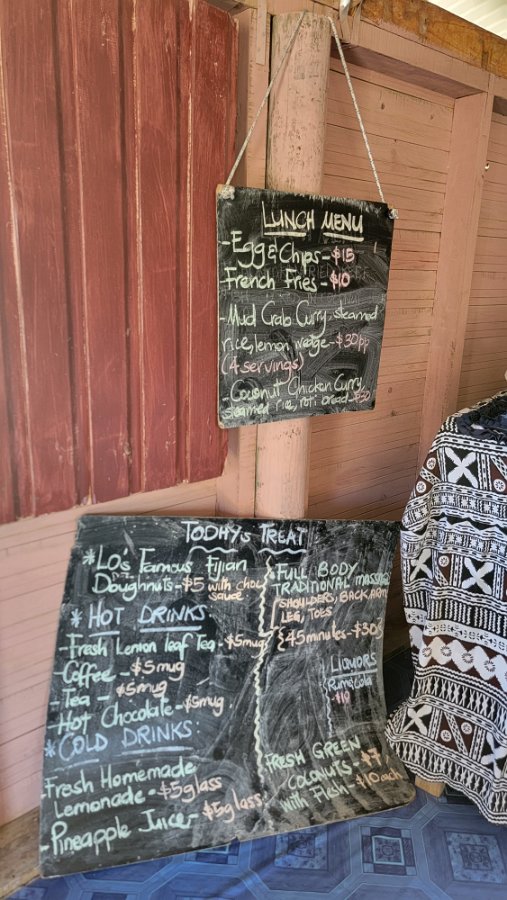 LUNCH MENU
-Egg & Chips - $15
French Fries - $10
-Mud Crab Curry, steamed
rice, lemon wedge - $30pp
(4 servings)
-Coconut Chicken Curry,
steamed rice, roti bread
TODAYs TREAT
*Lo's Famous Fijian
Doughnuts - $5 with choc
sauce
*HOT DRINKS:
-Fresh Lemon leaf Tea - $5mug
-Coffee - $5mug
-Tea - $5mug
-Hot Chocolate - $5mug.
*COLD DRINKS:
-Fresh Homemade
Lemonade - $5glass
-Pineapple Juice - $5glass.
*FULL BODY
TRADITIONAL MASSAGE
SHOULDERS, BACK, ARMS
LEG, TOES
45minutes - $30
LIQUORS
Rum & Cola
-$10
FRESH GREEN
COCONUTS - $7
with Flesh - $10 each